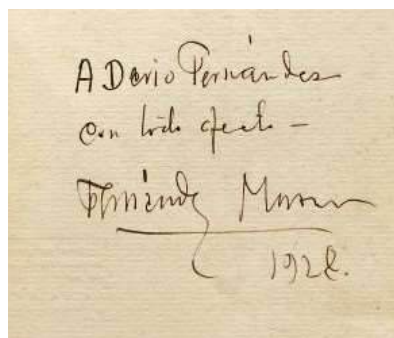 A Dario Fernández
con todo afecto —
Fernández Moreno
1928.